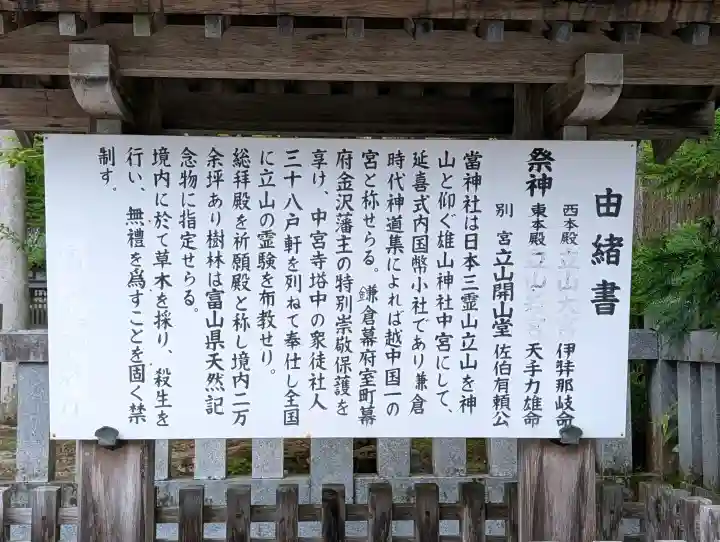 由緒書
西本殿 立山大宮 伊弉那岐命
祭神 東本殿 立山若宮 天手力雄命
別宮 立山開山堂 佐伯有頼公
當神社は日本三霊山立山を神
山と仰ぐ雄山神社中宮にして、
延喜式内国幣小社であり鎌倉
時代神道集によれば越中国一の
宮と称せらる。鎌倉幕府室町幕
府金沢藩主の特別崇敬保護を
享け、中宮寺塔中の衆徒社人
三十八戸軒を列ねて奉仕し全国
に立山の霊験を布教せり。
総拝殿を祈願殿と称し境内二万
余坪あり樹林は富山県天然記
念物に指定せらる。
境内に於て草木を採り、殺生を
行い、無禮を為すことを固く禁
制す。